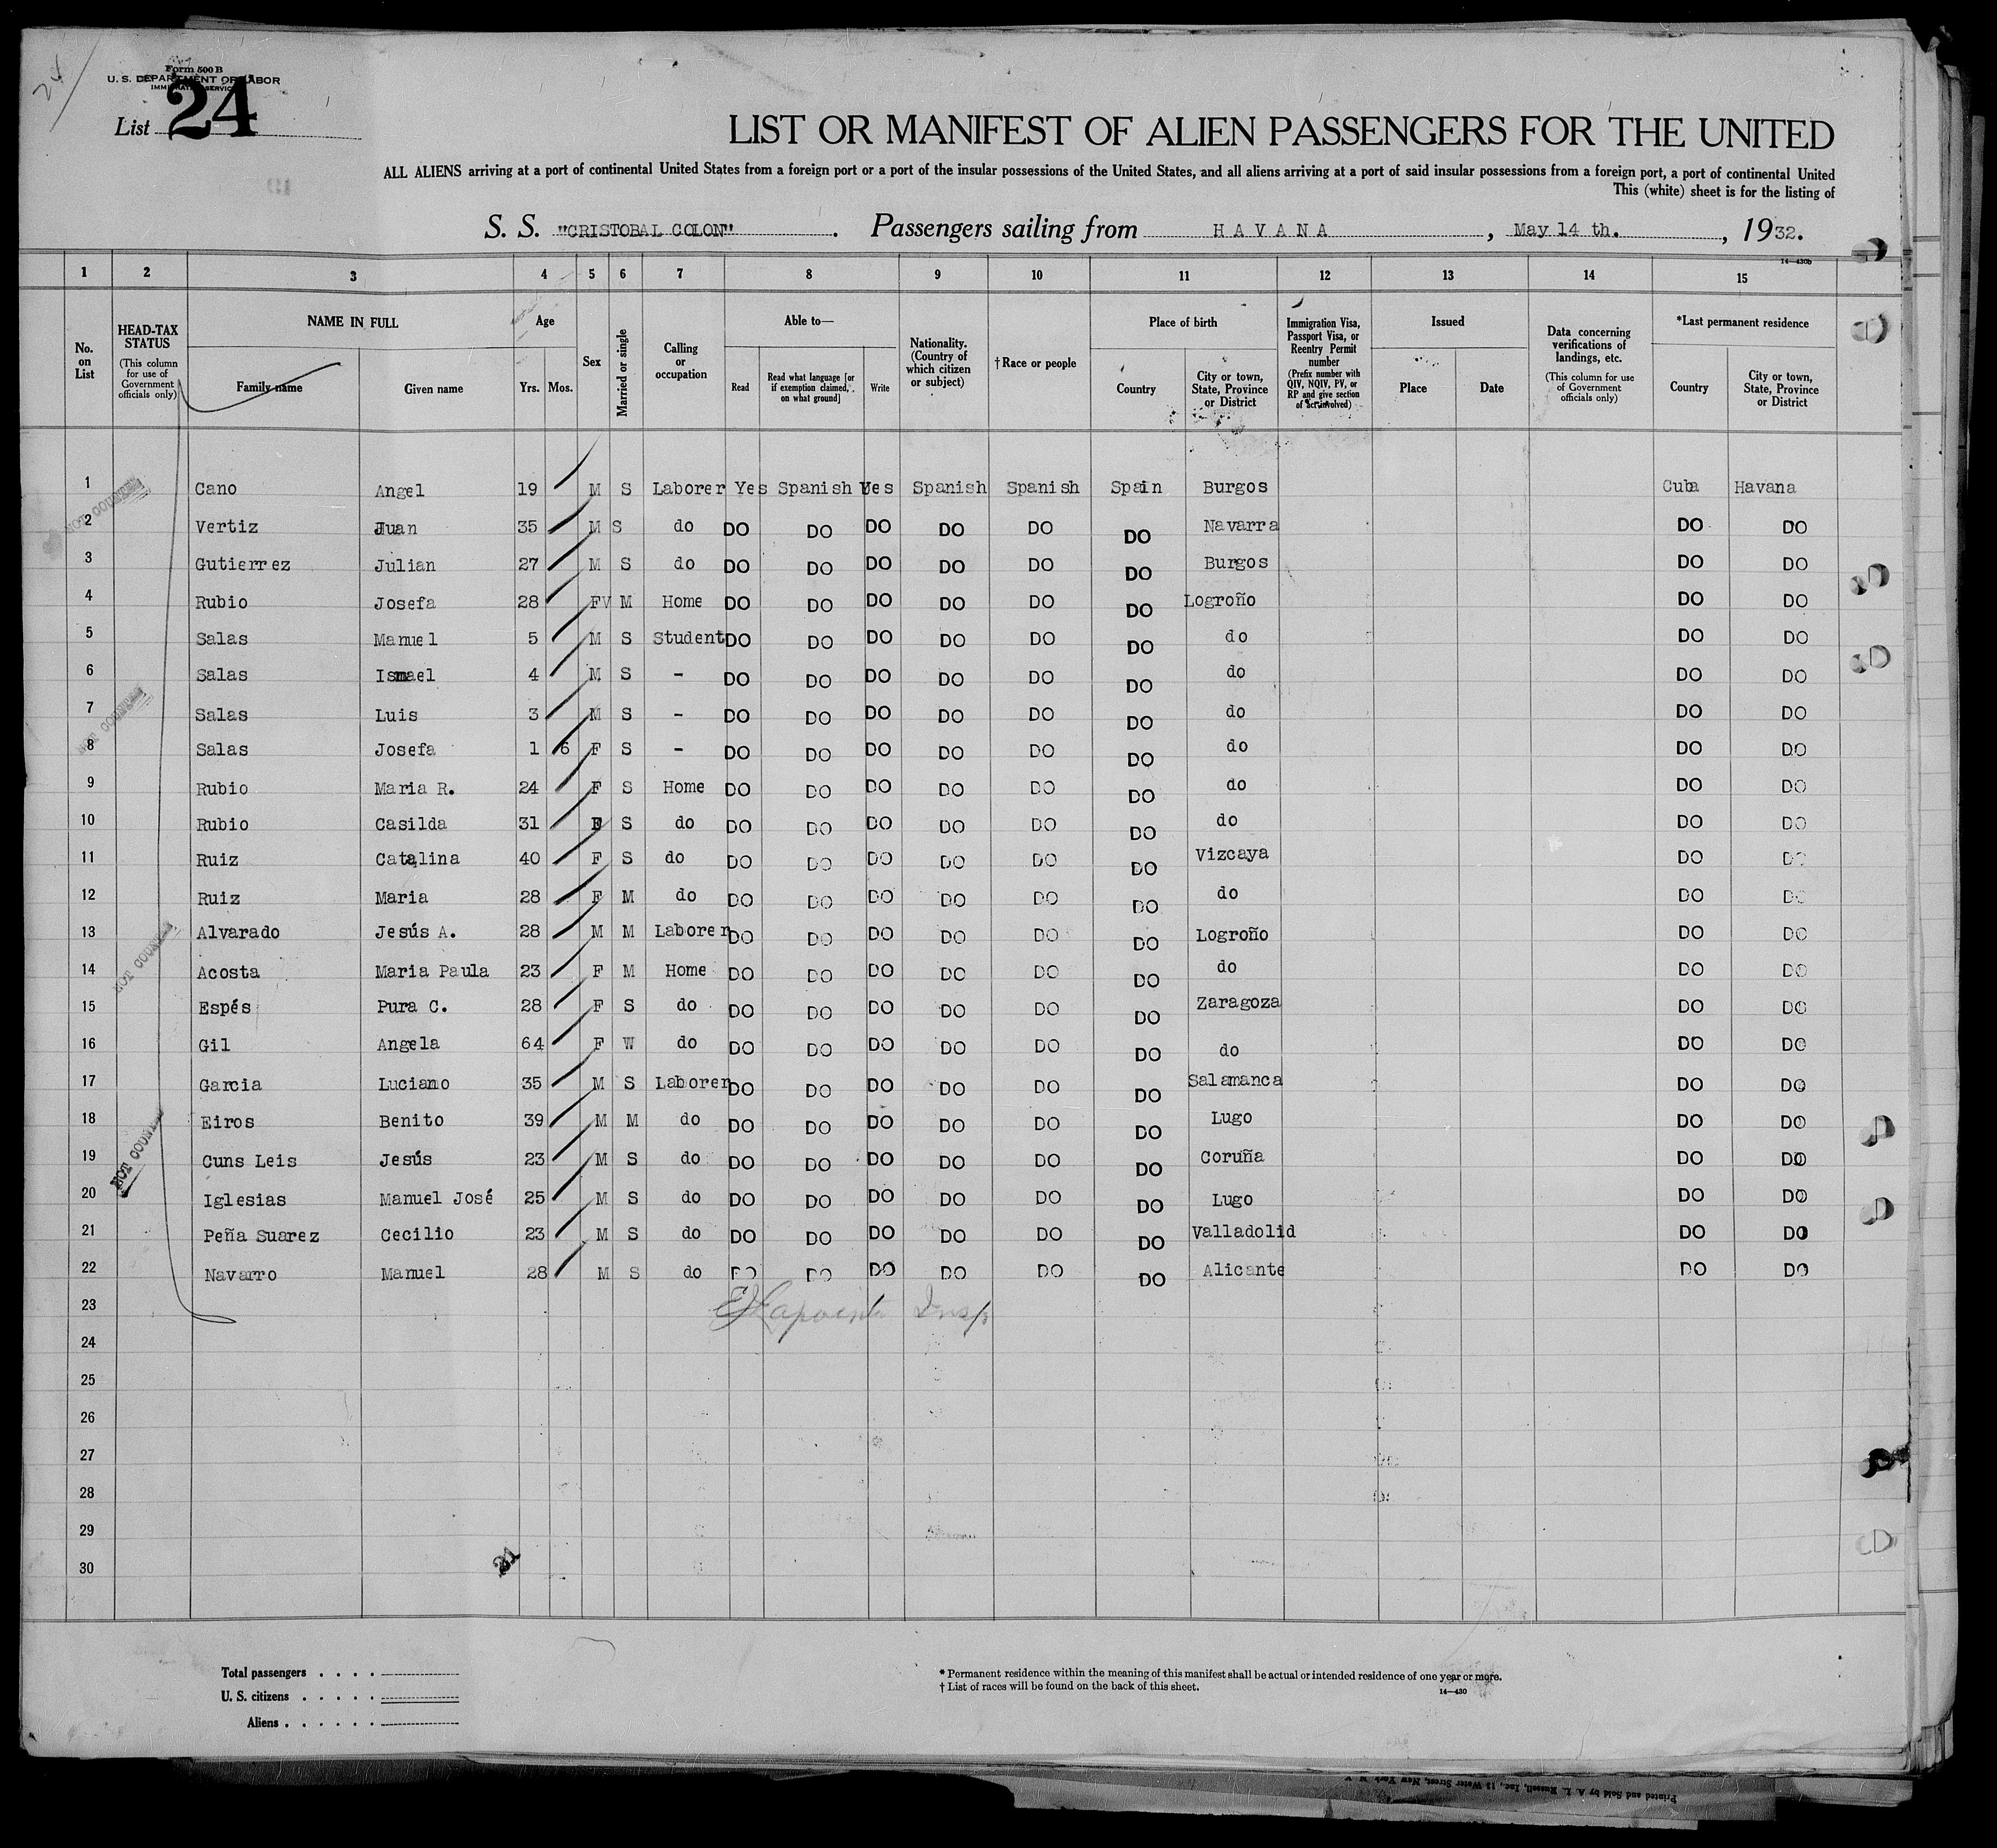 24
Form 500 B
U. S. DEPARTMENT OF LABOR
IMMIGRATION SERVICE
List 24
LIST OR MANIFEST OF ALIEN PASSENGERS FOR THE UNITED
ALL ALIENS arriving at a port of continental United States from a foreign port or a port of the insular possessions of the United States, and all aliens arriving at a port of said insular possessions from a foreign port, a port of continental United
This (white) sheet is for the listing of
S. S. "CRISTOBAL COLON". Passengers sailing from HAVANA, May 14 th., 1932.
14—430b
1 2 3 4 5 6 7 8 9 10 11 12 13 14 15
No. on List
HEAD-TAX STATUS
(This column for use of Government officials only)
NAME IN FULL
Family name Given name
Age
Yrs. Mos.
Sex
Married or single
Calling or occupation
Able to—
Read
Read what language [or if exemption claimed, on what ground]
Write
Nationality. (Country of which citizen or subject)
†Race or people
Place of birth
Country
City or town, State, Province or District
Immigration Visa, Passport Visa, or Reentry Permit number
(Prefix number with QIV, NQIV, PV, or RP and give section of act involved)
Issued
Place Date
Data concerning verifications of landings, etc.
(This column for use of Government officials only)
*Last permanent residence
Country
City or town, State, Province or District
1 Cano Angel 19 M S Laborer Yes Spanish Yes Spanish Spanish Spain Burgos Cuba Havana
2 Vertiz Juan 35 M S do DO DO DO DO DO DO Navarra DO DO
3 Gutierrez Julian 27 M S do DO DO DO DO DO DO Burgos DO DO
4 Rubio Josefa 28 F M Home DO DO DO DO DO DO Logroño DO DO
5 Salas Manuel 5 M S Student DO DO DO DO DO DO do DO DO
6 Salas Ismael 4 M S - DO DO DO DO DO DO do DO DO
7 Salas Luis 3 M S - DO DO DO DO DO DO do DO DO
8 Salas Josefa 1 6 F S - DO DO DO DO DO DO do DO DO
9 Rubio Maria R. 24 F S Home DO DO DO DO DO DO do DO DO
10 Rubio Casilda 31 F S do DO DO DO DO DO DO do DO DO
11 Ruiz Catalina 40 F S do DO DO DO DO DO DO Vizcaya DO DO
12 Ruiz Maria 28 F M do DO DO DO DO DO DO do DO DO
13 Alvarado Jesús A. 28 M M Laborer DO DO DO DO DO DO Logroño DO DO
14 Acosta Maria Paula 23 F M Home DO DO DO DO DO DO do DO DO
15 Espés Pura C. 28 F S do DO DO DO DO DO DO Zaragoza DO DO
16 Gil Angela 64 F W do DO DO DO DO DO DO do DO DO
17 Garcia Luciano 35 M S Laborer DO DO DO DO DO DO Salamanca DO DO
18 Eiros Benito 39 M M do DO DO DO DO DO DO Lugo DO DO
19 Cuns Leis Jesús 23 M S do DO DO DO DO DO DO Coruña DO DO
20 Iglesias Manuel José 25 M S do DO DO DO DO DO DO Lugo DO DO
21 Peña Suarez Cecilio 23 M S do DO DO DO DO DO DO Valladolid DO DO
22 Navarro Manuel 28 M S do DO DO DO DO DO DO Alicante DO DO
NOT COUNTED
NOT COUNTED
NOT COUNTED
NOT COUNTED
23 Lapointe Insp
24
25
26
27
28
29
30
21
Total passengers . . . .
U. S. citizens . . . . .
Aliens . . . . . .
* Permanent residence within the meaning of this manifest shall be actual or intended residence of one year or more.
† List of races will be found on the back of this sheet.
14—430
Printed and Sold by A. L. Russell, Inc., 13 Water Street, New York, N. Y.